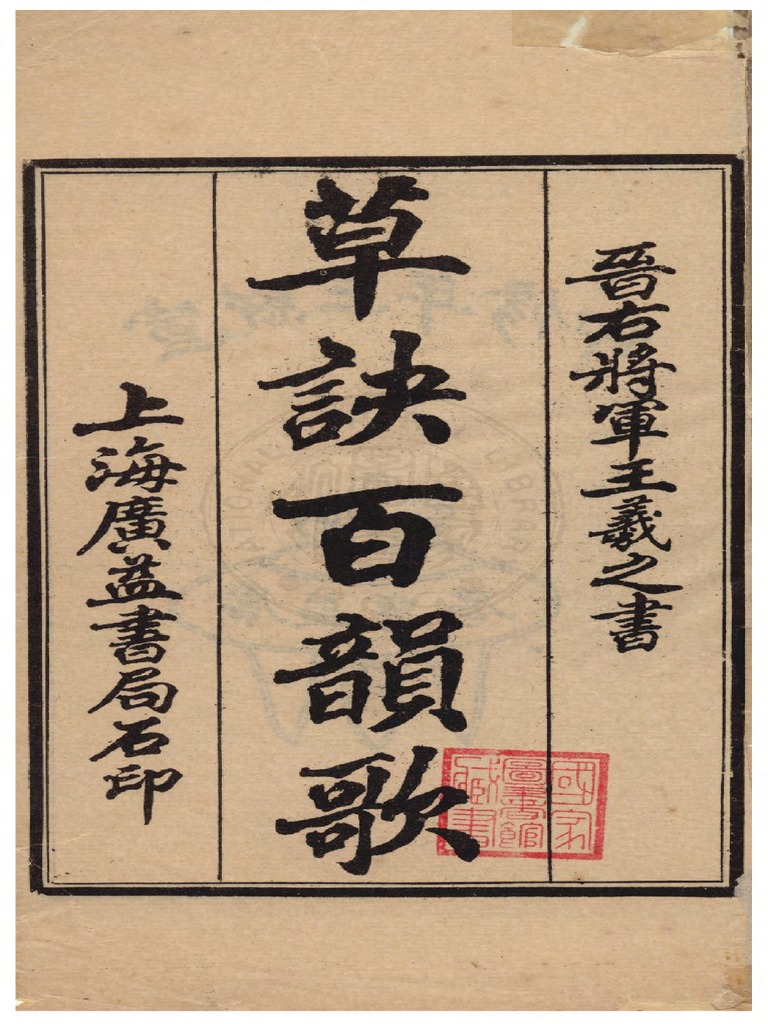 晉右將軍王羲之書
草訣百韻歌
上海廣益書局石印
國家
圖書館
藏書